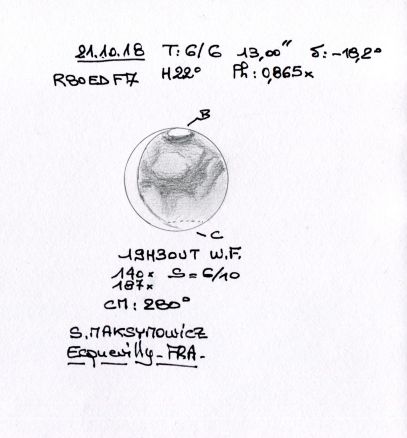 21.10.18 T: 6/6 13,00" δ: -18,2°
R80EDF7 H22° Ph: 0,865x
B
C
19H30UT W.F.
140x S = 6/10
187x
CM: 280°
S. MAKSYMOWICZ
Ecquevilly - FRA -